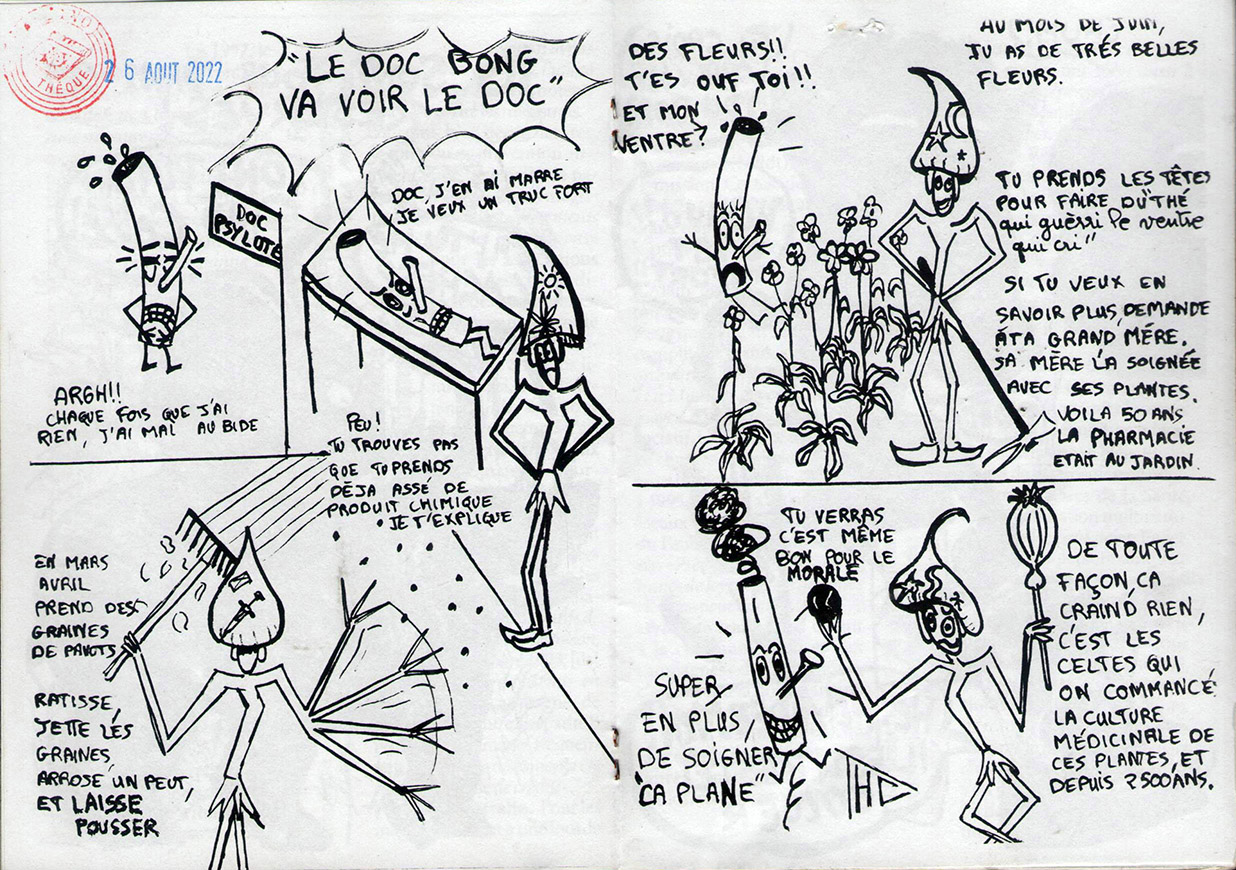 THÈQUE
26 AOUT 2022
"LE DOC BONG
VA VOIR LE DOC"
ARGH!!
CHAQUE FOIS QUE J'AI
RIEN, J'AI MAL AU BIDE
DOC
PSYLOTE
DOC, J'EN AI MARRE
JE VEUX UN TRUC FORT
PEU!
TU TROUVES PAS
QUE TU PRENDS
DÉJA ASSÉ DE
PRODUIT CHIMIQUE
JE T'EXPLIQUE
EN MARS
AVRIL
PREND DES
GRAINES
DE PAVOTS
RATISSE,
JETTE LES
GRAINES,
ARROSE UN PEUT,
ET LAISSE
POUSSER
DES FLEURS!!
T'ES OUF TOI!!
ET MON
VENTRE?
AU MOIS DE JUIN,
TU AS DE TRÉS BELLES
FLEURS.
TU PRENDS LES TÊTES
POUR FAIRE DU "THÉ
qui guèrri le ventre
qui cri"
SI TU VEUX EN
SAVOIR PLUS, DEMANDE
ÀTA GRAND MÉRE.
SA MÈRE L'A SOIGNÉE
AVEC SES PLANTES.
VOILA 50 ANS
LA PHARMACIE
ETAIT AU JARDIN.
TU VERRAS
C'EST MÊME
BON POUR LE
MORALE
SUPER,
EN PLUS,
DE SOIGNER
"CA PLANE"
HC
DE TOUTE
FAÇON, ÇA
CRAIND RIEN,
C'EST LES
CELTES QUI
ON COMMANCÉ
LA CULTURE
MÉDICINALE DE
CES PLANTES, ET
DEPUIS 2500 ANS.